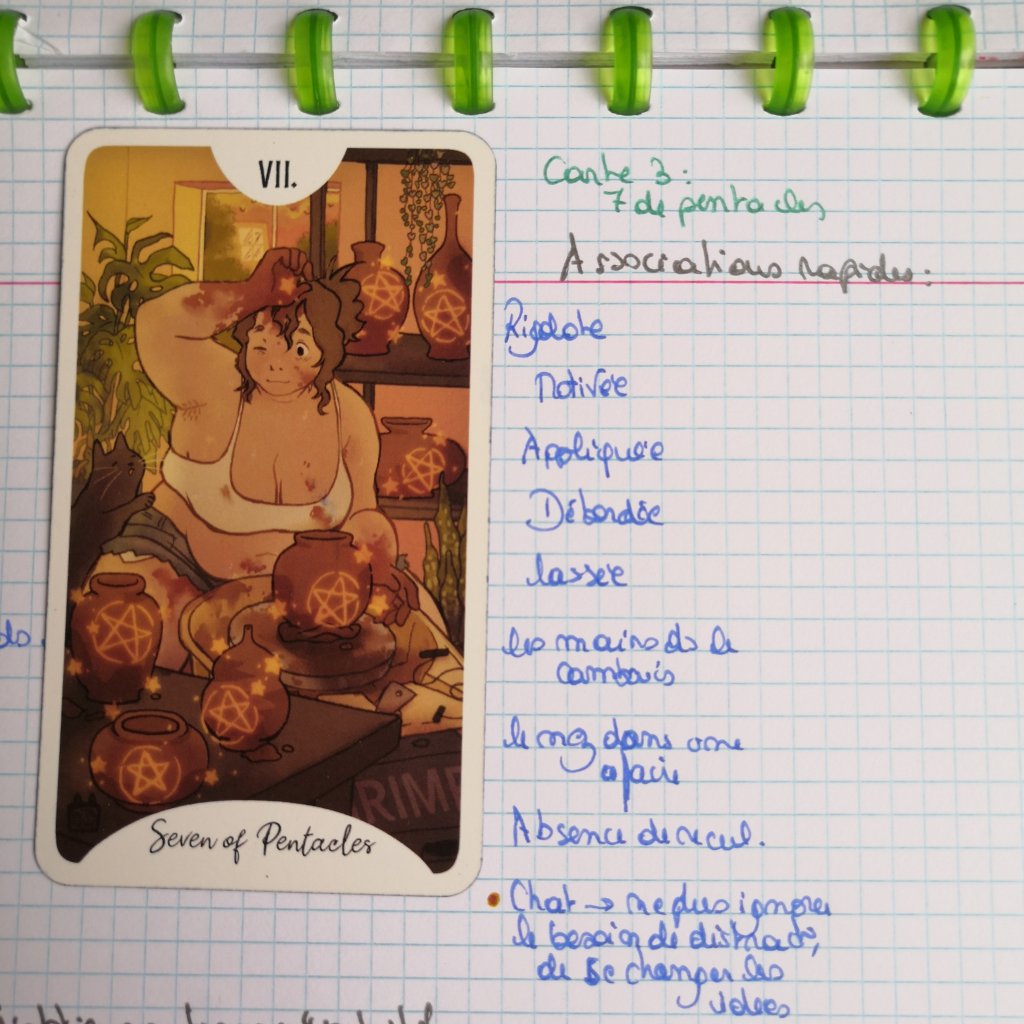 VII.
Carte 3:
7 de pentacles
Associations rapides:
Rigolote
Motivée
Appliquée
Débordée
lassée
les mains ds le
cambouis
le nez dans une
Absence de recul.
Chat → ne plus ignorer
le besoin de distract°,
de se changer les
idées
ds.
RIMF
Seven of Pentacles